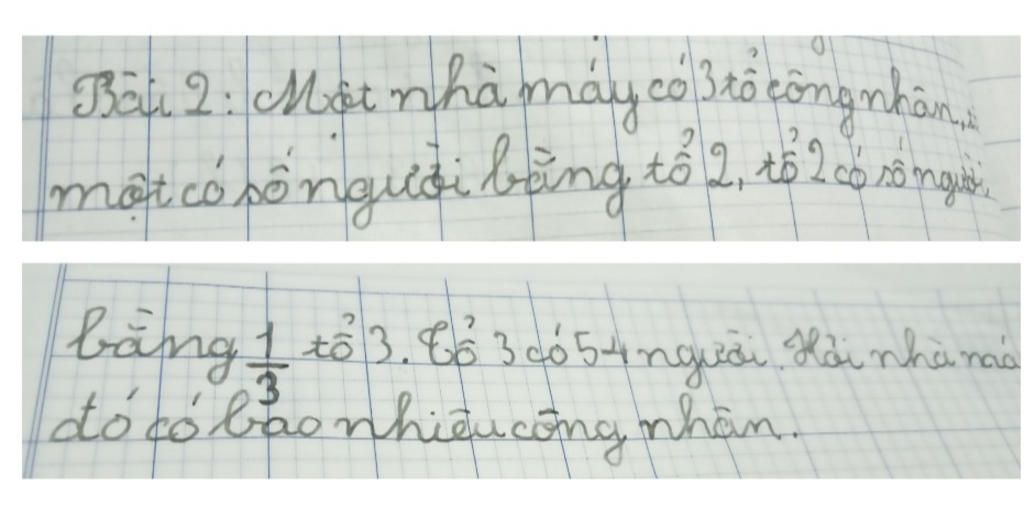 Bài 2: Một nhà máy có 3 tổ công nhân,
một có số người bằng tổ 2, tổ 2 có số người
bằng 1/3 tổ 3. Tổ 3 có 54 người. Hỏi nhà
đó có bao nhiêu công nhân.